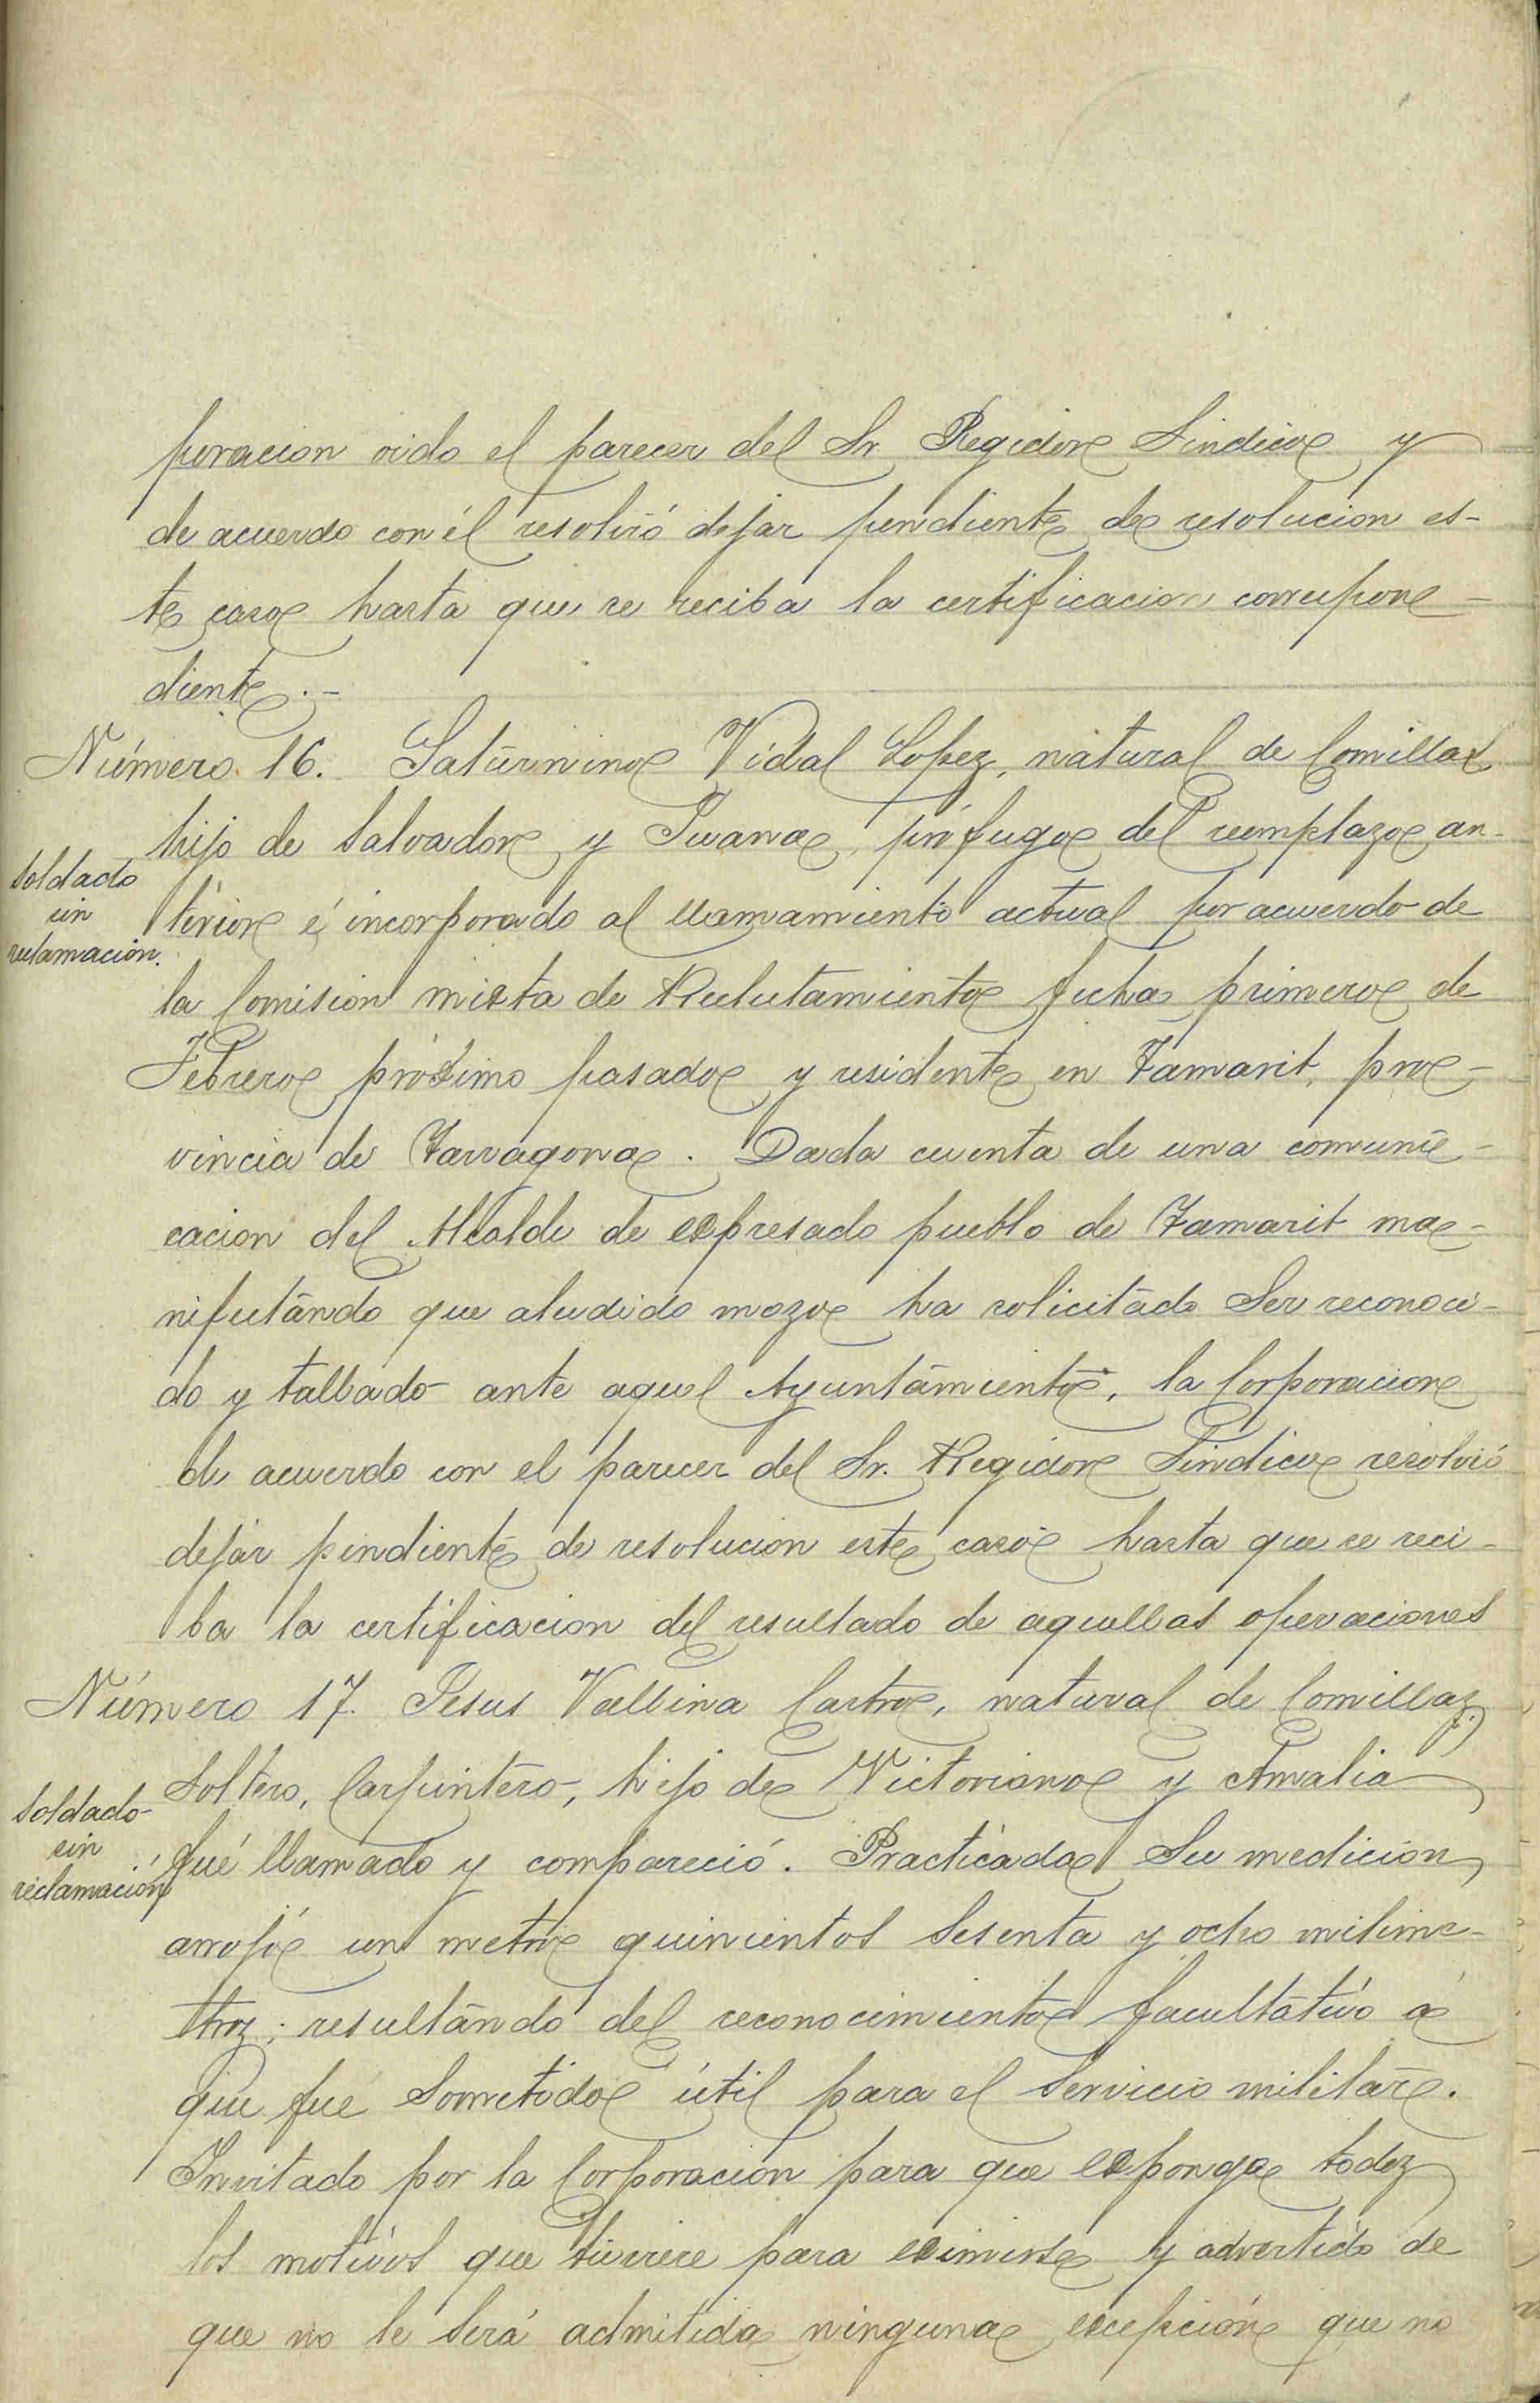 poracion oido el parecer del Sr. Regidor Sindico y
de acuerdo con él resolvió dejar pendiente de resolucion es-
te caso hasta que se reciba la certificacion correspon-
diente.-
Número 16. Saturnino Vidal Lopez, natural de Comillas
hijo de Salvador y Juana, prófugo del reemplazo an-
Soldado
sin
reclamación.
terior é incorporado al llamamiento actual por acuerdo de
la Comision mixta de Reclutamiento fecha primero de
Febrero próximo pasado y residente en Tamarit, pro-
vincia de Tarragona. Dada cuenta de una comuni-
cacion del Alcalde de expresado pueblo de Tamarit ma-
nifestando que aludido mozo ha solicitado ser reconoci-
do y tallado ante aquel Ayuntamiento, la Corporacion
de acuerdo con el parecer del Sr. Regidor Sindico resolvió
dejar pendiente de resolucion este caso hasta que se reci-
ba la certificacion del resultado de aquellas operaciones
Número 17. Jesus Vallina Castro, natural de Comillas,
Soltero, Carpintero, hijo de Victoriano y Amalia
Soldado
sin
reclamación
fué llamado y compareció. Practicada su medicion,
arrojó un metro quinientos sesenta y ocho milime-
tros; resultando del reconocimiento facultativo á
que fué sometido útil para el servicio militar.
Invitado por la Corporación para que exponga todos
los motivos que tuviere para eximirse y advertido de
que no le será admitida ninguna excepción que no